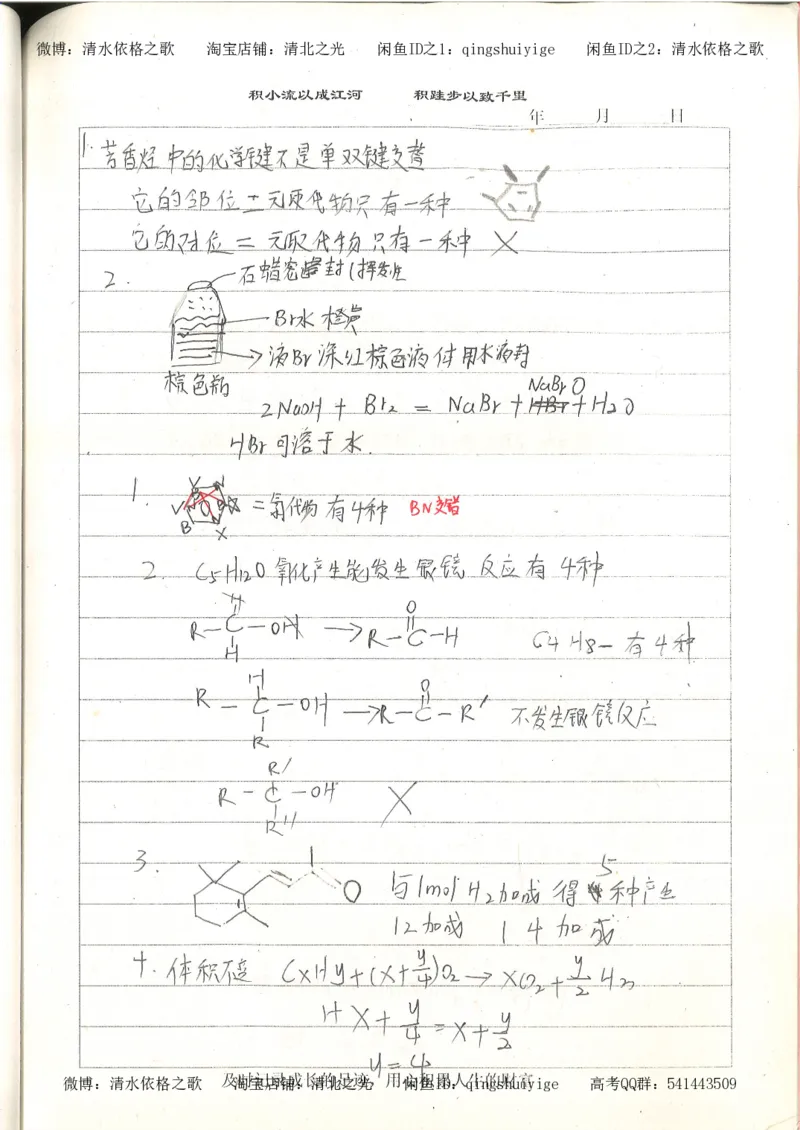 微博：清水依格之歌 淘宝店铺：清北之光 闲鱼ID之1：qingshuiyige 闲鱼ID之2：清水依格之歌
积小流以成江河 积跬步以致千里
年 月 日
1. 芳香烃中的化学键不是单双键交替
它的邻位二元取代物只有一种
它的对位二元取代物只有一种 X
2. 石蜡密封(挥发性
Br水 橙黄
液Br 深红棕色液体 用水液封
棕色瓶
NaBrO
2NaOH + Br₂ = NaBr + HBr + H₂O
HBr可溶于水.
1. 二氯代物 有4种 BN交错
B N
2. C₅H₁₂O 氧化产生能发生银镜反应有4种
H O
R—C—OH → R—C—H C4 H8— 有4种
H
H O
R—C—OH → R—C—R′ 不发生银镜反应
R
R′
R—C—OH X
R″
3. O 与1mol H₂加成 得5种产生
12加成 14加成
4. 体积不变 CxHy+(x+y/4)O₂→xCO₂+y/2 H₂O
1+x+y/4=x+y/2
y=4
及时记录成长的足迹，用心积累人生的财富
微博：清水依格之歌 淘宝店铺：清北之光 闲鱼ID：qingshuiyige 高考QQ群：541443509